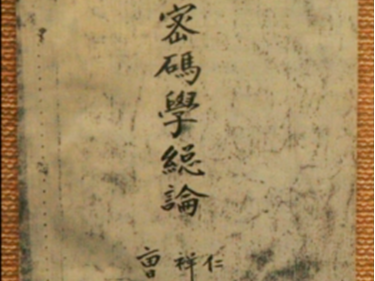 密碼學總論
曹祥仁